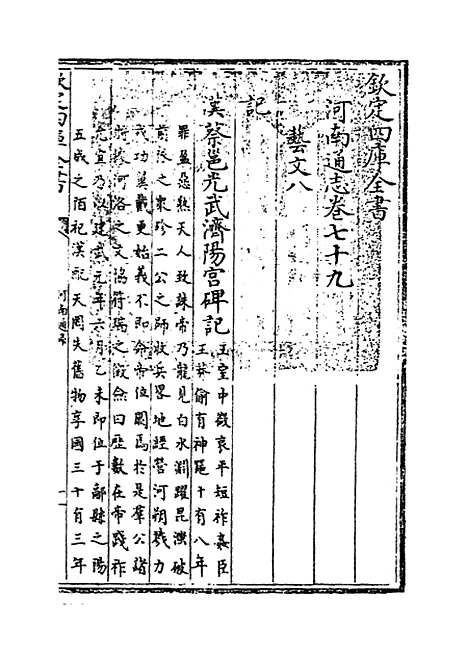 欽定四庫全書
河南通志卷七十九
藝文八
記
漢蔡邕光武濟陽宮碑記
王室中微哀平短祚姦臣
王莽偷有神器十有八年
罪盈惡熟天人致誅帝乃龍見白水淵躍昆滍破
前隊之衆殄二公之師收兵畧地經營河朔戮力
戎功翼戴更始義不即命帝位闕焉於是羣公諸
將據河洛之文協符瑞之徵僉曰歷數在帝踐祚
允宜乃以建武元年六月乙未即位于鄗縣之陽
五成之陌祀漢配天罔失舊物享國三十有三年
欽定四庫全書
河南通志
一